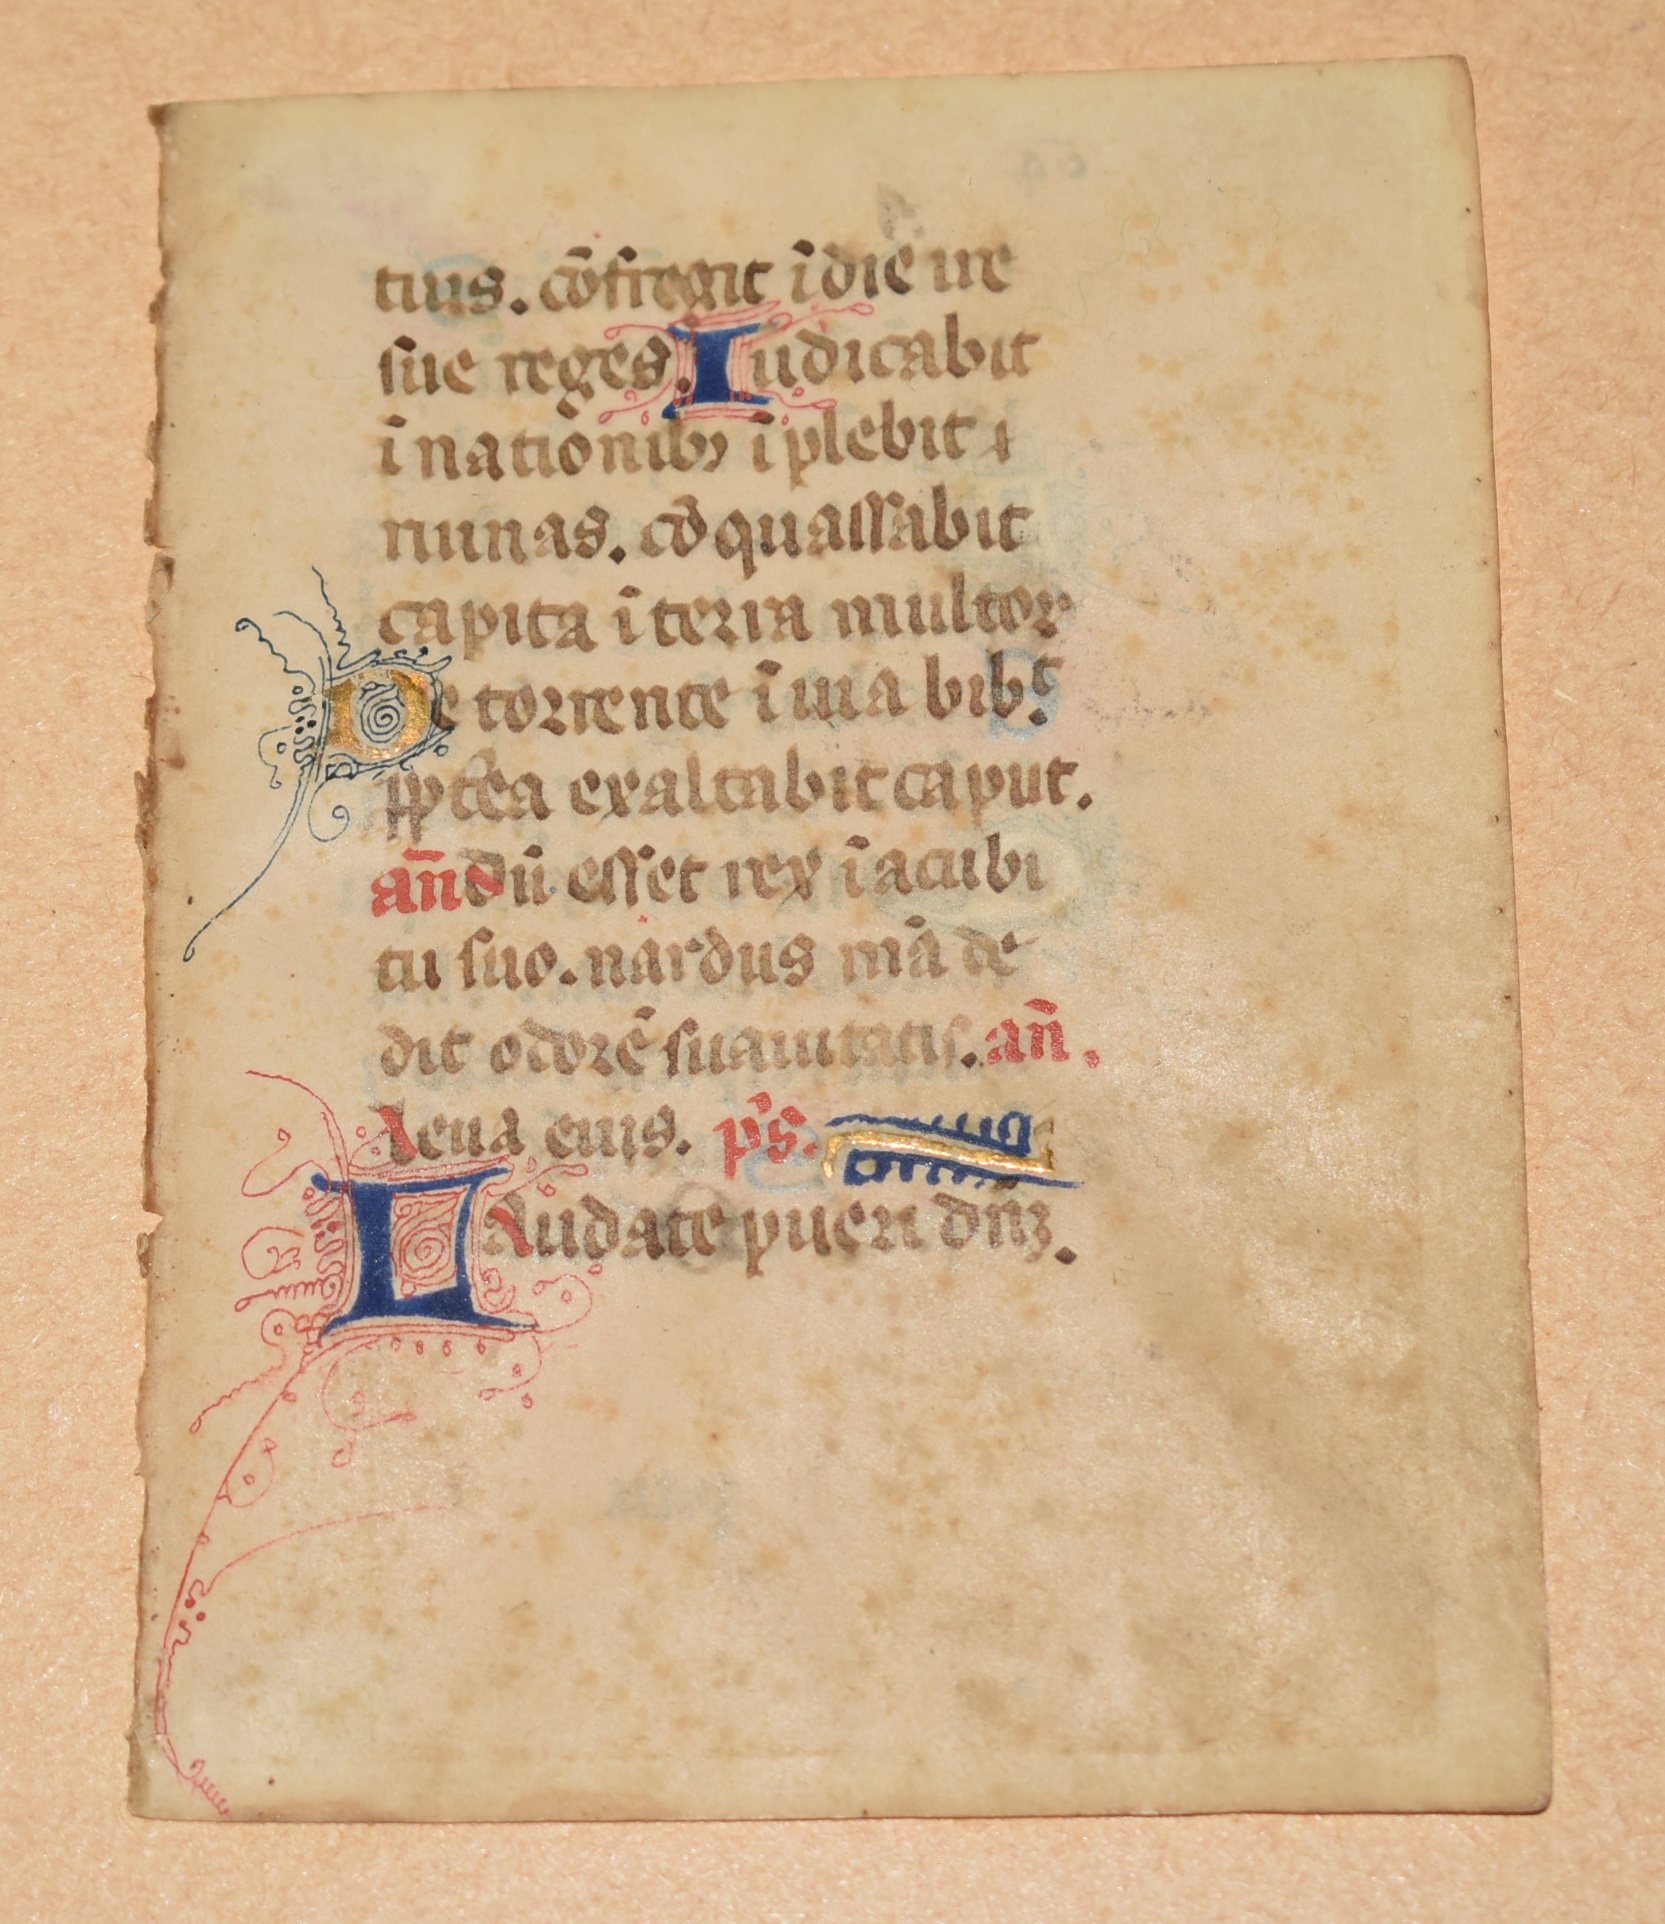 tuis. cōfregit ī die ire
sue reges. Iudicabit
ī nationibȝ īplebit
ruinas. cōquassabit
capita ī terra multoꝝ
De torrente ī uia bibꝫ
ꝓpt̄ea exaltabit caput.
an̄ dū esset rex ī acubi
tu suo. nardus mā de
dit odorē suauitatis. an̄.
Leua eius. ps.
Laudate pueri dn̄ꝫ.